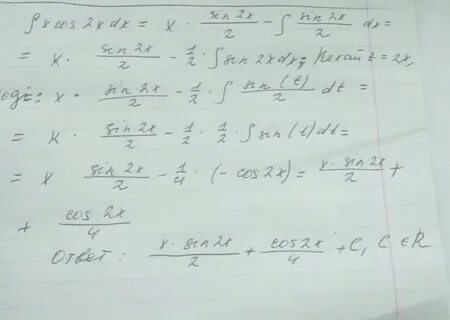 ∫xcos2xdx = x · sin2x/2 - ∫ sin2x/2 dx =
= x · sin2x/2 - 1/2 · ∫sin2xdx; Нехай t = 2x,
тоді: x · sin2x/2 - 1/2 · ∫ sin(t)/2 dt =
= x · sin2x/2 - 1/2 · 1/2 · ∫sin(t)dt =
= x sin2x/2 - 1/4 · (-cos2x) = x·sin2x/2 +
+ cos2x/4
Ответ: x·sin2x/2 + cos2x/4 + C, C ∈ R